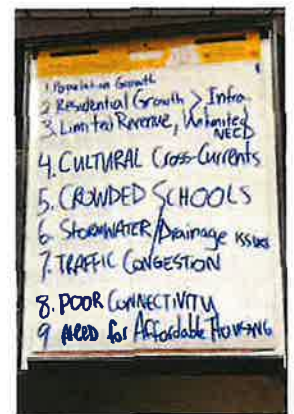 1. Population Growth
2. Residential Growth > Infra.
3. Limited Revenue, Unlimited
NEED
4. CULTURAL Cross-Currents
5. CROWDED SCHOOLS
6. STORMWATER/Drainage issues
7. TRAFFIC CONGESTION
8. POOR CONNECTIVITY
9 NEED for Affordable HOUSING